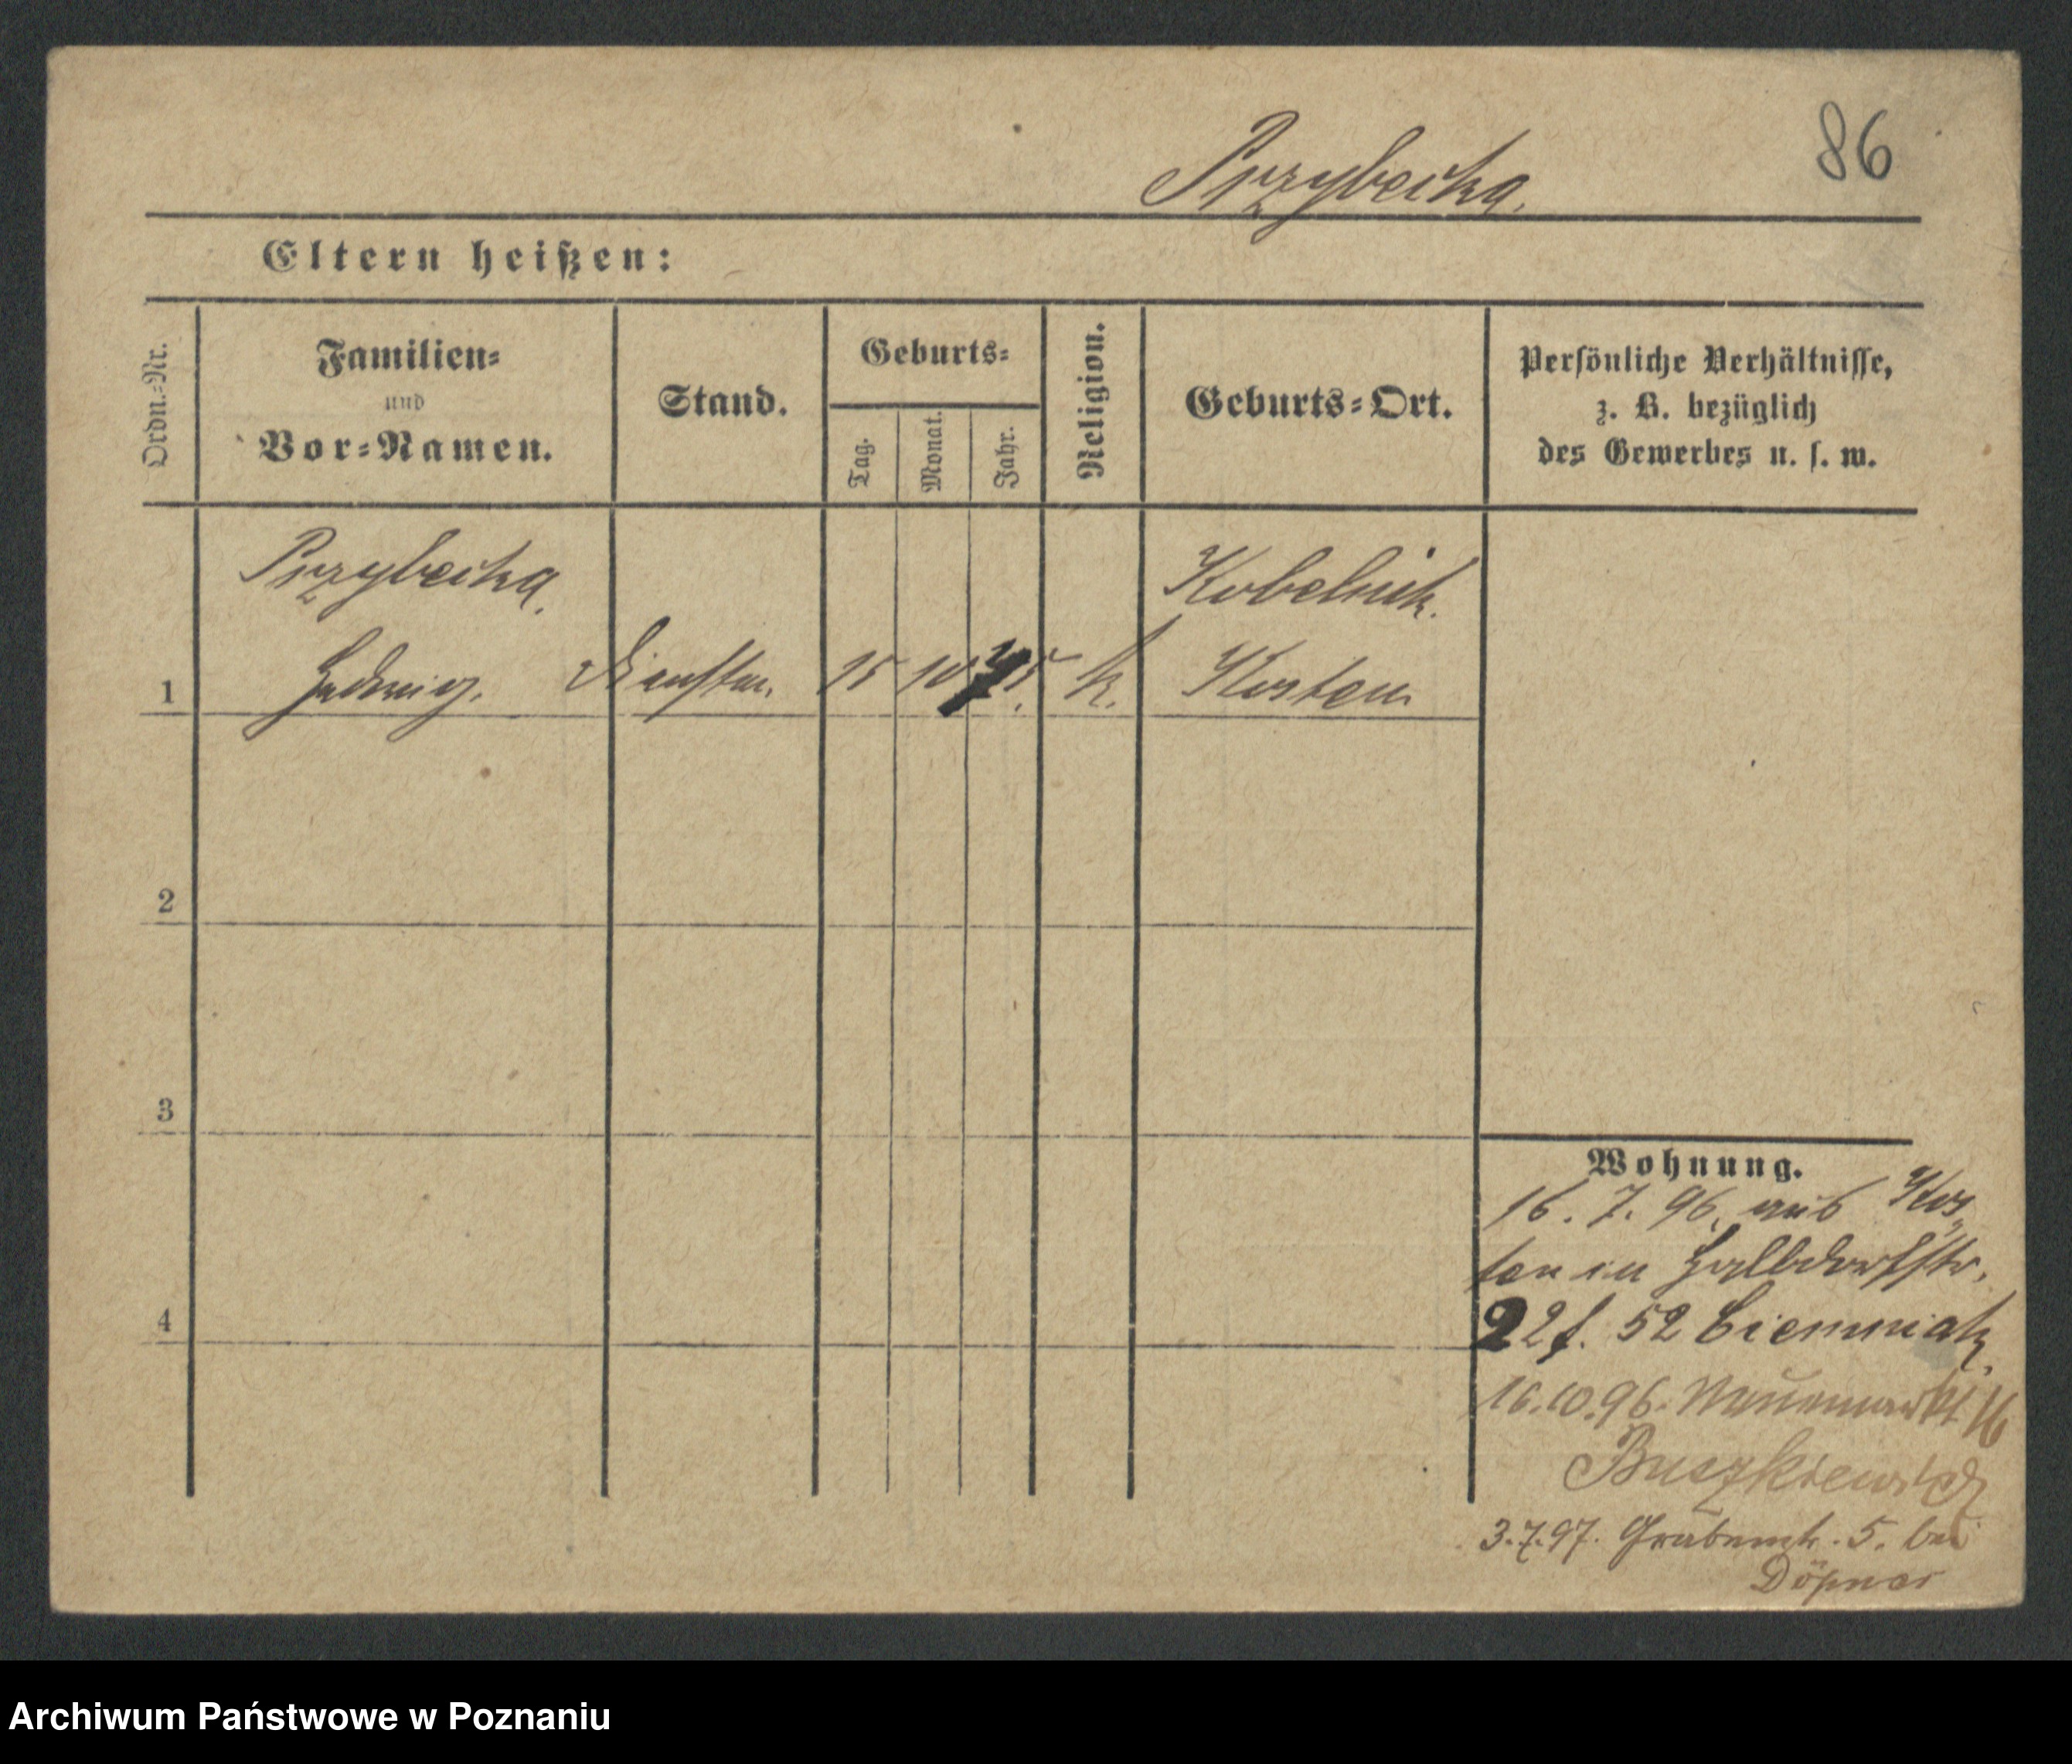 86
Przybecka.
Eltern heißen:
Ordn.-Nr.
Familien-
und
Vor-Namen.
Stand.
Geburts-
Tag.
Monat.
Jahr.
Religion.
Geburts-Ort.
Persönliche Verhältnisse,
z. B. bezüglich
des Gewerbes u. s. w.
Przybecka. Kobelnik.
1 Hedwig. Dienstm. 15 10 75. k. Kosten
2
3
4
Wohnung.
16. 7. 96. aus Kos-
ten in Halbdorfstr.
22 f. 52 Bierniak.
16.10.96. Neuemarkt 16
Buszkiewicz
3.7.97. Grabenstr. 5. bei
Döpner
Archiwum Państwowe w Poznaniu